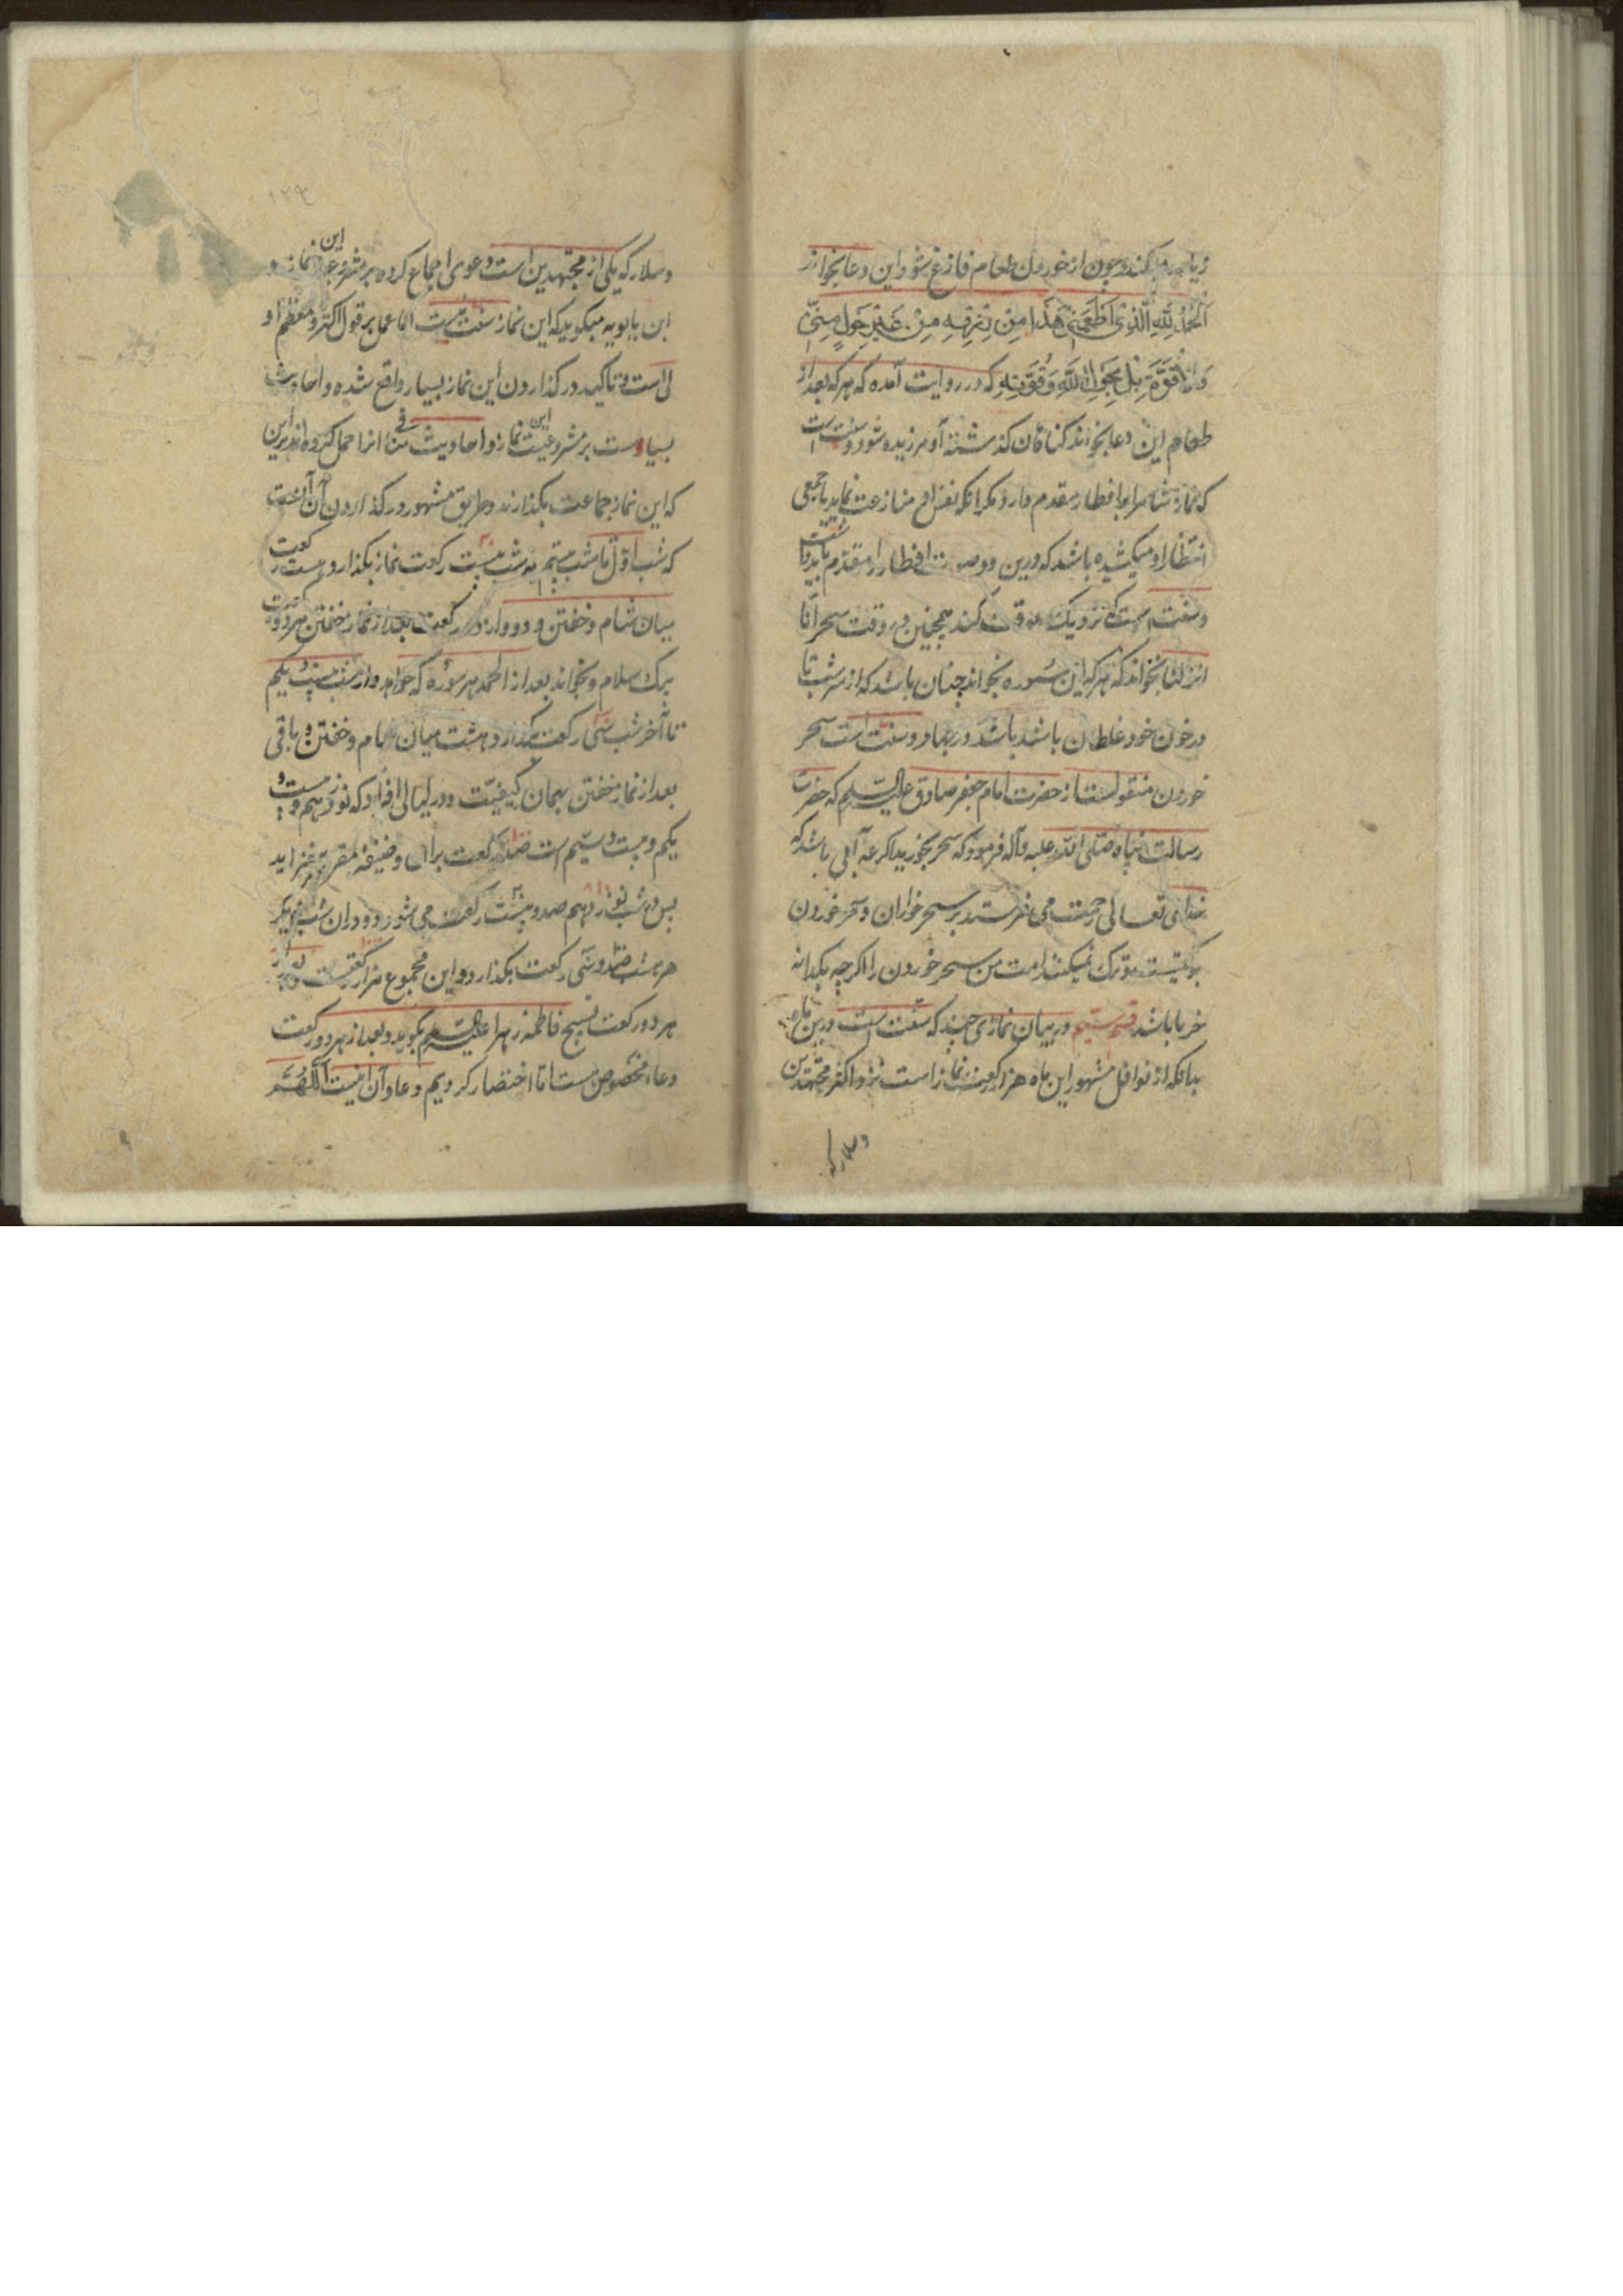 زیاده میکند و چون از خوردن طعام فارغ شود این دعا بخواند
اَلْحَمْدُ لِلّهِ الَّذِی اَطْعَمَنِی هَذَا مِنْ رِزْقِهِ مِنْ غَیْرِ حَوْلٍ مِنِّی
وَلَا قُوَّةٍ بَلْ بِحَوْلِ اللَّهِ وَقُوَّتِهِ که در روایت آمده که هر که بعد از
طعام این دعا بخواند گناهان گذشته او آمرزیده شود و سنت است
که نماز شام را بر افطار مقدم دارد مگر آنکه نفس او منازعت نماید یا جمعی
انتظار او میکشیده باشد که درین دو صورت افطار را مقدم
و سنت است که نزدیک کند همچنین در وقت سحر انا
انزلنا بخواند که هر که این سوره بخواند چنان باشد که از سر شب تا
در خون خود غلطان باشد در جهاد و سنت است سحر
خوردن منقولست از حضرت امام جعفر صادق علیه السلم که حضرت
رسالت پناه صلی الله علیه وآله فرمود که سحر بخورید اگر جرعه آبی باشد که
خدای تعالی رحمت می فرستد بر سحر خواران و سحر خوردن
برکتیست ترک نمیکند امت من سحر خوردن را اگر چه یکدانه
خرما باشد قسم سیم در بیان نمازی چند که سنت است درین ماه
بدانکه از نوافل مشهور این ماه هزار رکعت نماز است نزد اکثر مجتهدین
وسلار که
۱۲۹
وسلار که یکی از مجتهدین است دعوی اجماع کرده بر مشروعیت این نماز و
ابن بابویه میگوید که این نماز سنت نیست اما عمل بر قول اکثر و معظم
است و تاکید در گذاردن این نماز بسیار واقع شده و احادیث
بسیارست بر مشروعیت این نماز و احادیث منافی انرا حمل کرده اند برین
که این نماز بجماعت بگذارند و طریق مشهور در گذاردن آن آنست
که شب اول تا شب بیستم هر شب بیست رکعت نماز بگذارد هشت رکعت
میان شام و خفتن و دوازده رکعت بعد از نماز خفتن هر دو رکعت
بیک سلام و بخواند بعد از الحمد هر سوره که خواهد و از شب بیست و یکم
تا آخر شب سی رکعت بگذارد هشت میان شام و خفتن و باقی
بعد از نماز خفتن بهمان کیفیت و در لیالی افراد که نوزدهم و بیست و
یکم و بیست و سیم است صد رکعت بران وظیفهٔ مقرره بیفزاید
پس در شب نوزدهم صد و بیست رکعت می شود و در آن شب دیگر
هر شب صد و سی رکعت بگذارد و این مجموع هزار رکعتست و بعد از
هر دو رکعت تسبیح فاطمه زهرا علیها السلم بگوید و بعد از هر دو رکعت
دعاء مخصوص هست اما اختصار کردیم و دعا و آن اینست اَللّهُمَّ